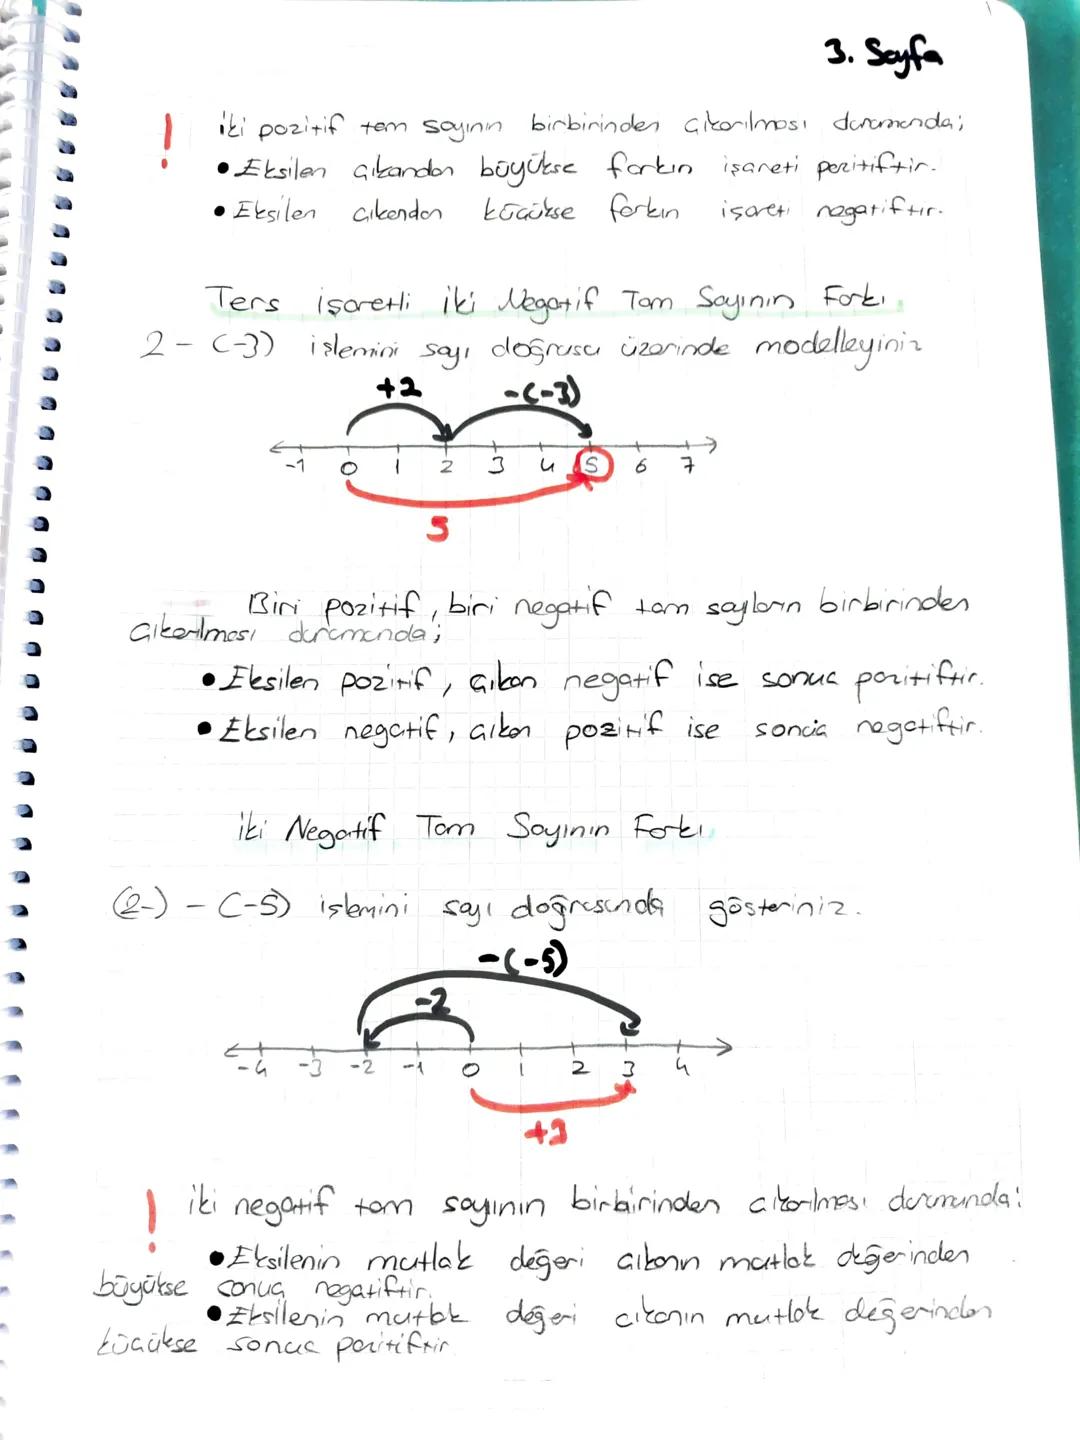 3. Sayfa
! İki pozitif tam sayının birbirinden çıkarılması durumunda;
• Eksilen çıkandan büyükse farkın işareti pozitiftir.
• Eksilen çıkandan küçükse farkın işareti negatiftir.
Ters işaretli iki Negatif Tam Sayının Farkı
2 - (-3) işlemini sayı doğrusu üzerinde modelleyiniz
+2 -(-3)
-1 0 1 2 3 4 5 6 7
5
Biri pozitif, biri negatif tam sayların birbirinden
çıkarılması durumunda;
• Eksilen pozitif, çıkan negatif ise sonuç pozitiftir.
• Eksilen negatif, çıkan pozitif ise sonuç negatiftir.
İki Negatif Tam Sayının Farkı
(2-) - (-5) işlemini sayı doğrusunda gösteriniz.
-(-5)
-2
-4 -3 -2 -1 0 1 2 3 4
+3
! İki negatif tam sayının birbirinden çıkarılması durumunda:
• Eksilenin mutlak değeri çıkanın mutlak değerinden
büyükse sonuç negatiftir.
• Eksilenin mutlak değeri çıkanın mutlak değerinden
küçükse sonuç pozitiftir